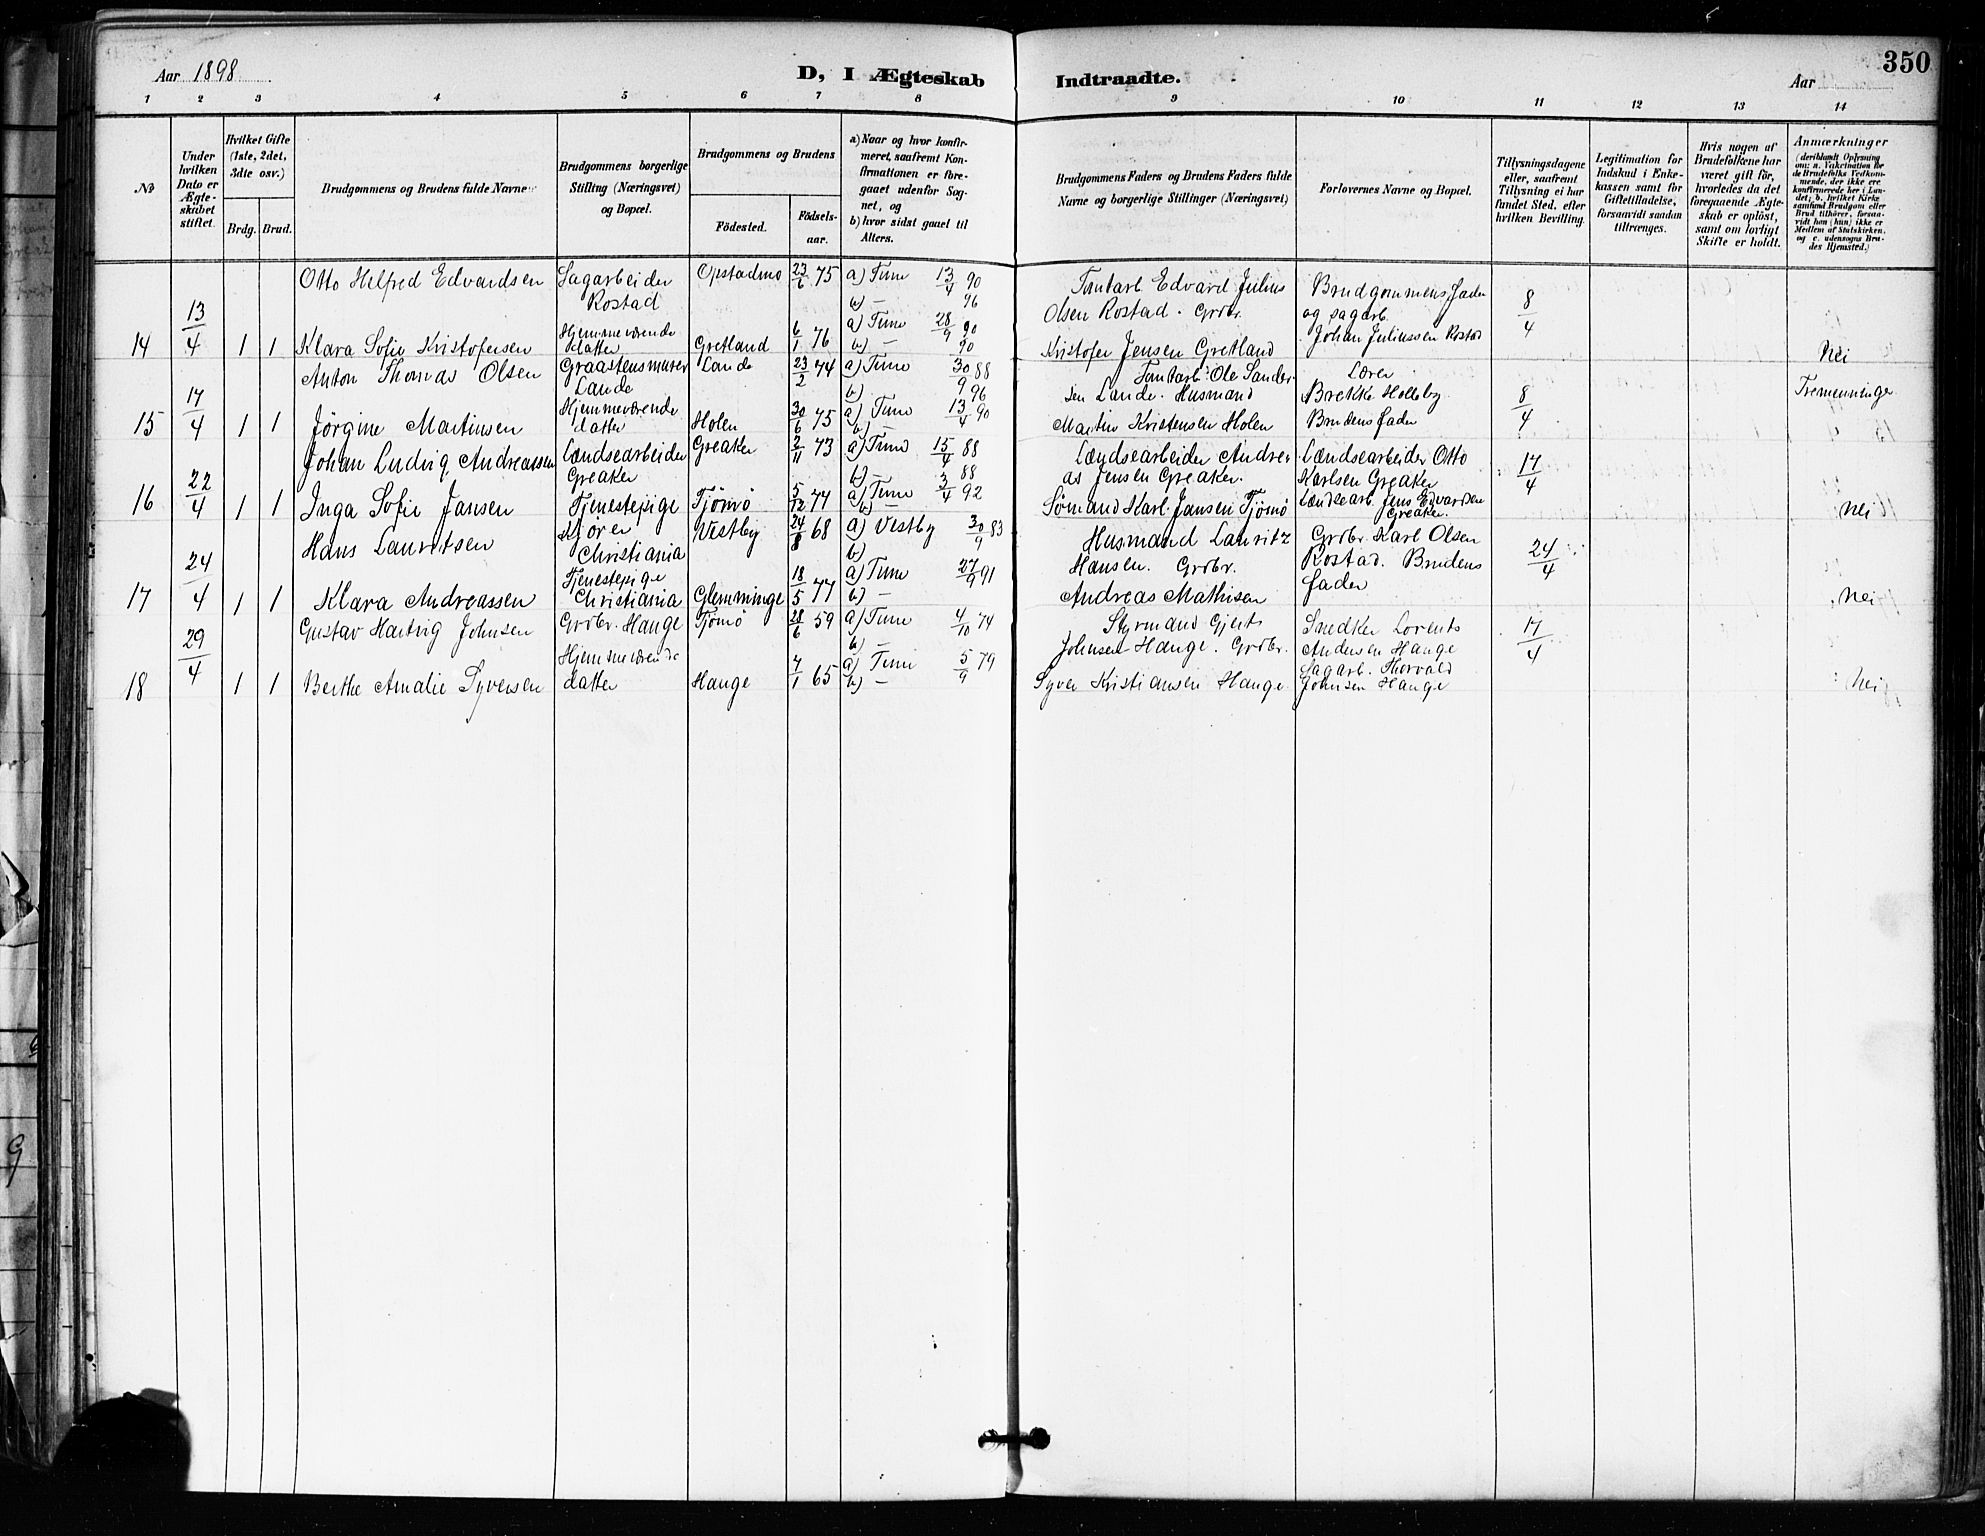 Aar 1898
D, I Ægteskab Indtraadte.
Aar
350
1 2 3 4 5 6 7 8 9 10 11 12 13 14
No
Under hvilken Dato er Ægteskabet stiftet.
Hvilket Gifte (1ste, 2det, 3dte osv.)
Brdg. Brud.
Brudgommens og Brudens fulde Navne
Brudgommens borgerlige Stilling (Næringsvei) og Bopæl.
Brudgommens og Brudens
Fødested. Fødselsaar.
a) Naar og hvor konfirmeret, saafremt Konfirmationen er foregaaet udenfor Sognet, og
b) hvor sidst gaaet til Alters.
Brudgommens Faders og Brudens Faders fulde Navne og borgerlige Stillinger (Næringsvei)
Forlovernes Navne og Bopæl.
Tillysningsdagene eller, saafremt Tillysning ei har fundet Sted, efter hvilken Bevilling.
Legitimation for Indskud i Enkekassen samt for Giftetilladelse, forsaavidt saadan tiltrænges.
Hvis nogen af Brudefolkene har været gift før, hvorledes da det foregaaende Ægteskab er opløst, samt om lovligt Skifte er holdt.
Anmærkninger
(deriblandt Oplysning om: a. Vakcination for de Brudefolks Vedkommende, der ikke ere konfirmerede her i Landet; b. hvilket Kirkesamfund Brudgom eller Brud tilhører, forsaavidt han (hun) ikke er Medlem af Statskirken, og c. udensogns Brudes Hjemsted.)
Otto Helfred Edvardsen Sagarbeider Rostad Opstadmo 23/6 75 a) Tune 13/4 90 b) – 96 Tomtarb. Edvard Julius Olsen Rostad. Grdbr. Brudgommens fader og sagarb. Johan Juliussen Rostad 8/4
14 13/4 1 1 Klara Sofie Kristofersen Hjemmeværende datter Gretland 6/1 76 a) Tune 28/9 90 b) – 90 Kristofer Jensen Gretland Nei
Anton Thomas Olsen Graastensmurer Lande Lande 23/2 74 a) Tune 30/9 88 b) 96 Tomtarb: Ole Sandersen Lande. Husmand Lærer Brekke Holleby 8/4 Tremenninger
15 17/4 1 1 Jørgine Martinsen Hjemmeværende datter Holen 30/6 75 a) Tune 13/4 90 b) – Martin Kristensen Holen Brudens fader
Johan Ludvig Andreassen Lændsearbeider Greaker Greaker 2/11 73 a) Tune 15/4 88 b) – 88 Lændsearbeider Andreas Jensen Greaker. Lændsearbeider Otto Karlsen Greaker 17/4
16 22/4 1 1 Inga Sofie Jansen Tjenestepige Tjømø 5/12 77 a) Tune 3/4 92 b) – Sømand Karl Jansen Tjømø Lændsearb. Jens Edvardsen Greaker. Nei
Hans Lauritsen Kjører Christiania Vestby 24/8 68 a) Vestby 30/9 83 b) Husmand Lauritz Hansen. Grdbr. Grdbr. Karl Olsen Rostad. Brudens fader 24/4
17 24/4 1 1 Klara Andreassen Tjenestepige Christiania Glemminge 18/5 77 a) Tune 27/9 91 b) – Andreas Mathisen Nei
Gustav Hartvig Johnsen Grdbr. Hauge Tjømø 28/6 59 a) Tune 4/10 74 b) – Styrmand Gjert Johnsen Hauge. Grdbr. Snedker Lorents Andersen Hauge 17/4
18 29/4 1 1 Berthe Amalie Syversen Hjemmeværende datter Hauge 7/1 65 a) Tune 5/9 79 b) – Syver Kristiansen Hauge. Sagarb. Thorvald Johnsen Hauge Nei